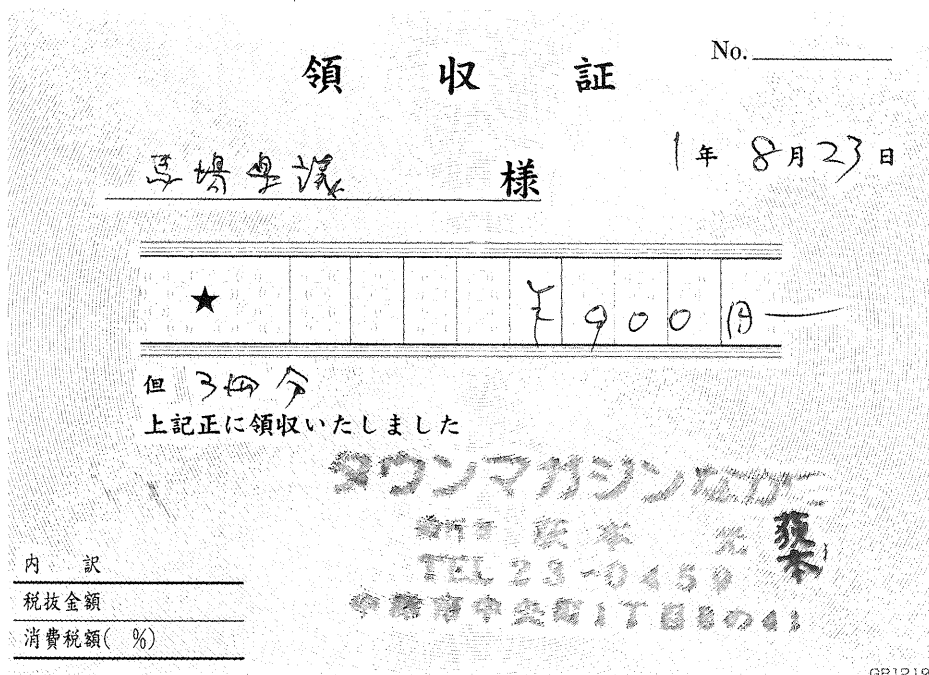 領収証
No.
1年 8月23日
馬場県議 様
★ ¥900円
但 3冊分
上記正に領収いたしました
タウンマガジンなかつ
発行者
TEL 23-0459
中津市中央町1丁目8の41
内 訳
税抜金額
消費税額( %)
GB1219